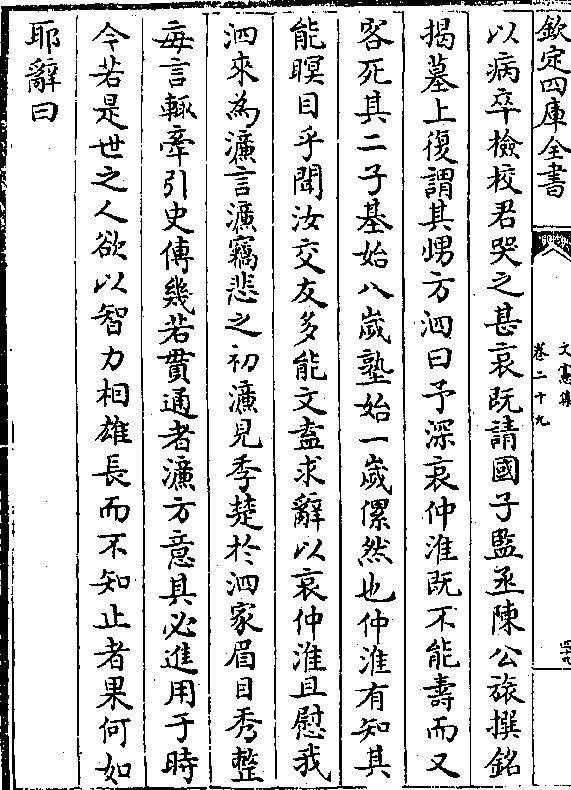 欽定四庫全書
文憲集
卷二十九
四十九
以病卒檢校君哭之甚哀既請國子監丞陳公旅撰銘
揭墓上復謂其甥方泗曰予深哀仲淮既不能壽而又
客死其二子基始八歲塾始一歲傫然也仲淮有知其
能瞑目乎聞汝交友多能文盍求辭以哀仲淮且慰我
泗來為濂言濂竊悲之初濂見季楚於泗家眉目秀整
每言輒牽引史傳幾若貫通者濂方意其必進用于時
今若是世之人欲以智力相雄長而不知止者果何如
耶辭曰